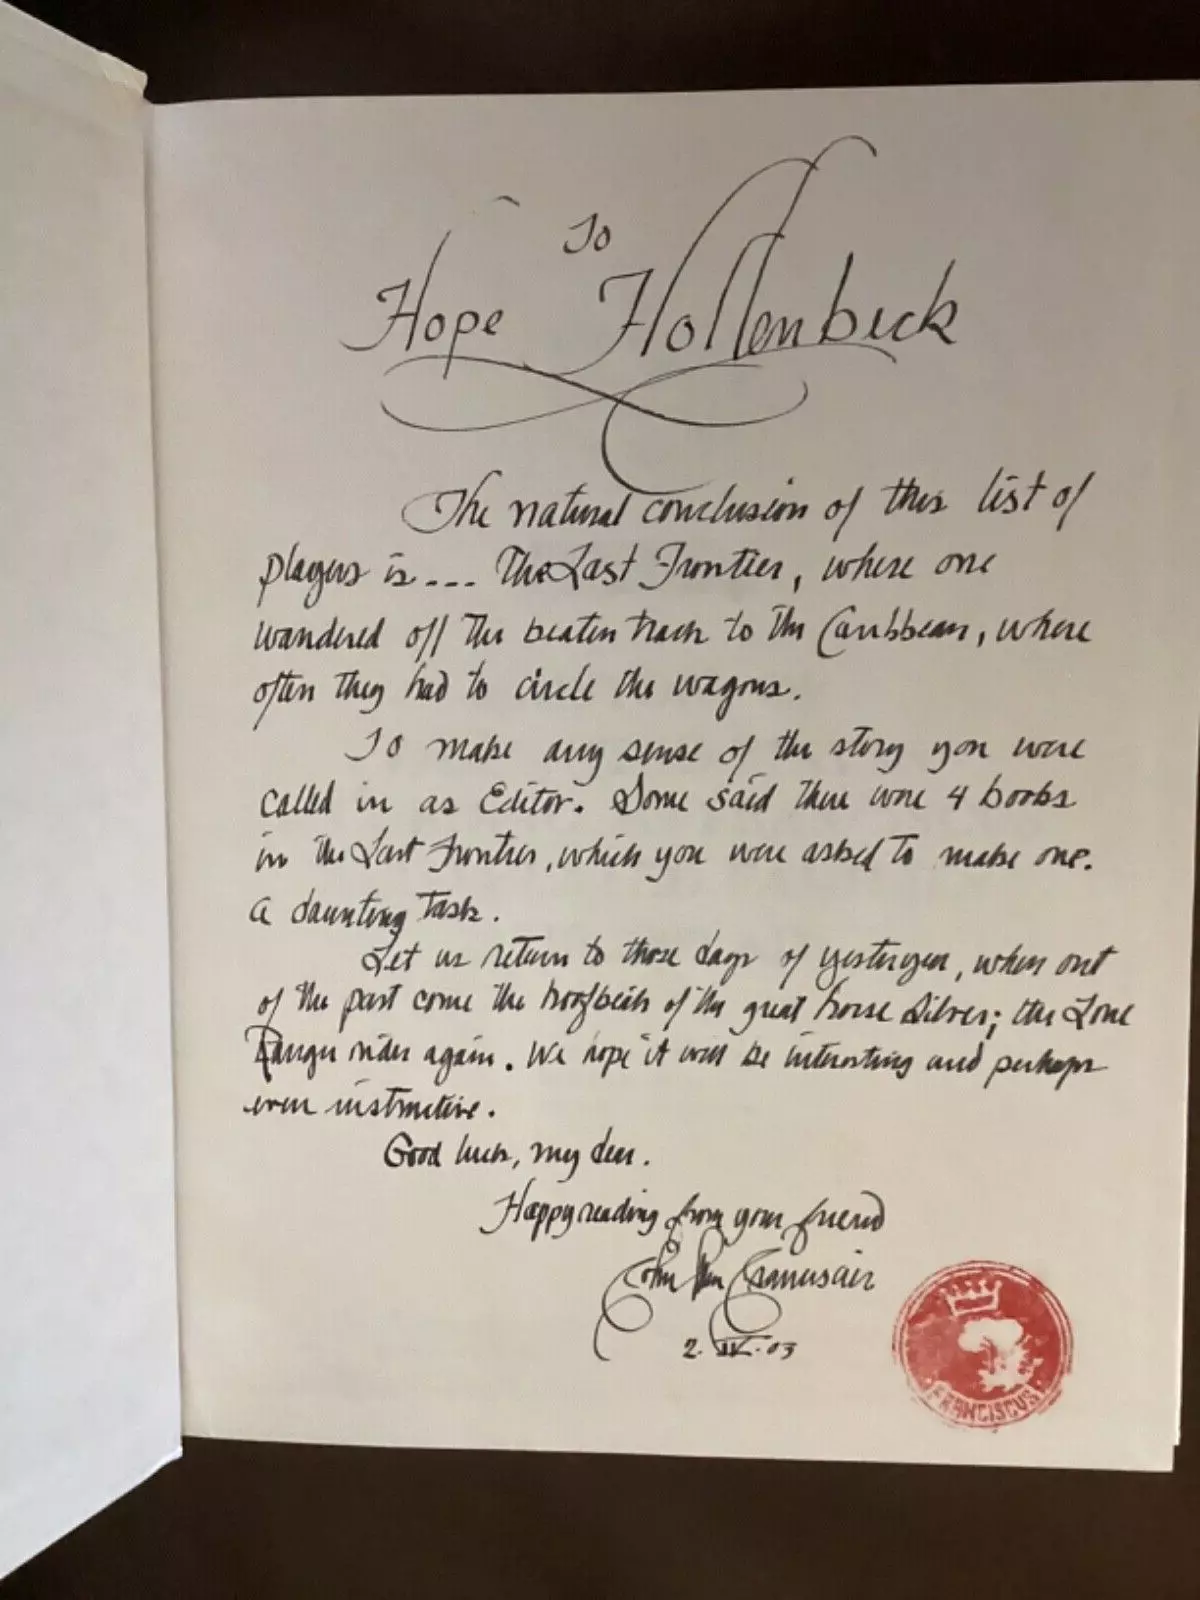 To
Hope Hollenbeck
The natural conclusion of this list of
players is... The Last Frontier, where one
wandered off the beaten track to the Caribbean, where
often they had to circle the wagons.
To make any sense of the story you were
called in as Editor. Some said there were 4 books
in the Last Frontier, which you were asked to make one.
A daunting task.
Let us return to those days of yesteryear, when out
of the past come the hoofbeats of the great horse Silver; the Lone
Ranger rides again. We hope it will be interesting and perhaps
even instructive.
Good luck, my dear.
Happy reading from your friend
John
2. IV. 03
FRANCISCUS